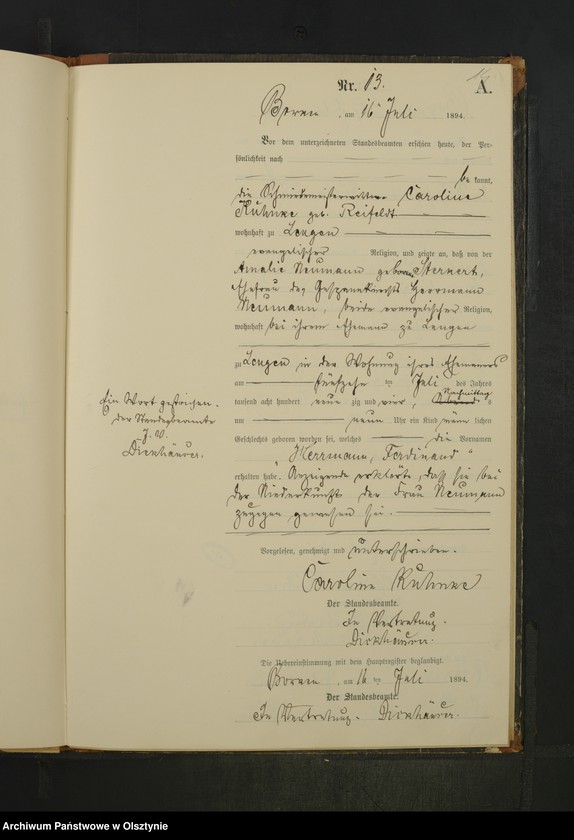 Nr. 13.
A.
Boren, am 16 Juli 1894.
Vor dem unterzeichneten Standesbeamten erschien heute, der Per-
sönlichkeit nach
be kannt,
die Schmiedemeisterwittwe Caroline
Kuhnke geb. Reifeldt
wohnhaft zu Lengen
evangelischer Religion, und zeigte an, daß von der
Amalie Neumann geboren Sternert,
Ehefrau des Gespannknechts Herrmann
Neumann, beide evangelischer Religion,
wohnhaft bei ihrem Ehemann zu Lengen
zu Lengen in der Wohnung ihres Ehemannes
am fünfzehn ten Juli des Jahres
tausend acht hundert neun zig und vier, Nachmittag s
um neun Uhr ein Kind männ lichen
Geschlechts geboren worden sei, welches die Vornamen
"Herrmann, Ferdinand"
erhalten habe. Anzeigende erklärte, daß sie bei
der Niederkunft der Frau Neumann
zugegen gewesen sei.
Ein Wort gestrichen.
Der Standesbeamte
J. V.
Dickhäuer.
Vorgelesen, genehmigt und unterschrieben.
Caroline Kuhnke
Der Standesbeamte.
In Vertretung.
Dickhäuer.
Die Uebereinstimmung mit dem Hauptregister beglaubigt.
Boren, am 16 ten Juli 1894.
Der Standesbeamte.
In Vertretung. Dickhäuer.
Archiwum Państwowe w Olsztynie